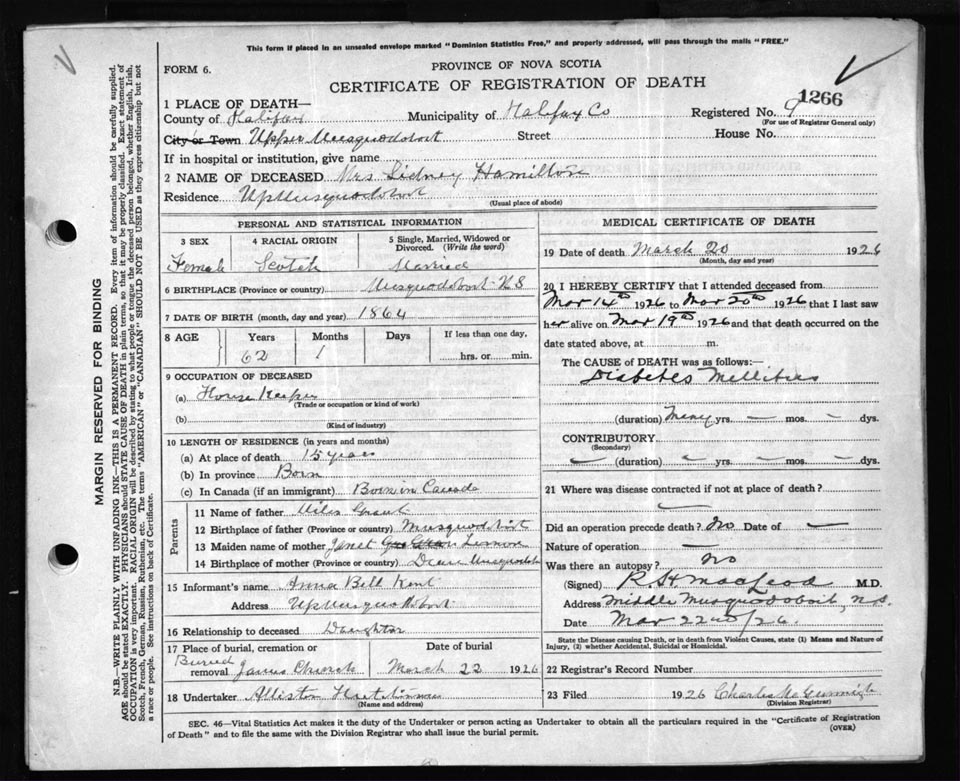 This form if placed in an unsealed envelope marked "Dominion Statistics Free," and properly addressed, will pass through the mails "FREE."
FORM 6.
PROVINCE OF NOVA SCOTIA
CERTIFICATE OF REGISTRATION OF DEATH
1266
1 PLACE OF DEATH—
County of Halifax Municipality of Halifax Co Registered No. 9
(For use of Registrar General only)
City or Town Upper Musquodoboit Street House No.
If in hospital or institution, give name
2 NAME OF DECEASED Mrs Sidney Hamilton
Residence Up Musquodoboit
(Usual place of abode)
PERSONAL AND STATISTICAL INFORMATION
3 SEX 4 RACIAL ORIGIN 5 Single, Married, Widowed or Divorced. (Write the word)
Female Scotch Married
6 BIRTHPLACE (Province or country) Musquodoboit NS
7 DATE OF BIRTH (month, day and year) 1864
8 AGE Years Months Days If less than one day,
62 1 hrs. or min.
9 OCCUPATION OF DECEASED
(a) House Keeper
(Trade or occupation or kind of work)
(b)
(Kind of industry)
10 LENGTH OF RESIDENCE (in years and months)
(a) At place of death 15 years
(b) In province Born
(c) In Canada (if an immigrant) Born in Canada
Parents
11 Name of father Miles Grant
12 Birthplace of father (Province or country) Musquodoboit
13 Maiden name of mother Janet
14 Birthplace of mother (Province or country) Musquodoboit
15 Informant's name Anna Bell Kent
Address Up Musquodoboit
16 Relationship to deceased Daughter
17 Place of burial, cremation or removal Date of burial
Buried James Church March 22 1926
18 Undertaker Alliston Hutchinson
(Name and address)
MEDICAL CERTIFICATE OF DEATH
19 Date of death March 20 1926
(Month, day and year)
20 I HEREBY CERTIFY that I attended deceased from
Mar 14th 1926 to Mar 20th 1926 that I last saw
her alive on Mar 19th 1926 and that death occurred on
date stated above, at m.
The CAUSE of DEATH was as follows:
Diabetes Mellitus
(duration) Many yrs. — mos. — dys.
CONTRIBUTORY
(Secondary)
— (duration) — yrs. — mos. — dys.
21 Where was disease contracted if not at place of death?
—
Did an operation precede death? No Date of —
Nature of operation —
Was there an autopsy? no
(Signed) R H MacLeod M.D.
Address Middle Musquodoboit, N.S.
Date Mar 22nd/26.
State the Disease causing Death, or in death from Violent Causes, state (1) Means and Nature of Injury, (2) whether Accidental, Suicidal or Homicidal.
22 Registrar's Record Number
23 Filed 1926 Charles
(Division Registrar)
SEC. 46—Vital Statistics Act makes it the duty of the Undertaker or person acting as Undertaker to obtain all the particulars required in the "Certificate of Registration
of Death" and to file the same with the Division Registrar who shall issue the burial permit.
(OVER)
MARGIN RESERVED FOR BINDING
N.B.—WRITE PLAINLY WITH UNFADING INK—THIS IS A PERMANENT RECORD. Every item of information should be carefully supplied.
AGE should be stated EXACTLY. PHYSICIANS should STATE CAUSE OF DEATH in plain terms, so that it may be properly classified. Exact statement of
OCCUPATION is very important. RACIAL ORIGIN will be described by stating to what people or tongue the deceased person belonged, whether English, Irish,
Scotch, French, German, Russian, Ruthenian, etc. The terms "AMERICAN" or "CANADIAN" SHOULD NOT BE USED as they express citizenship but not
a race or people. See instructions on back of Certificate.